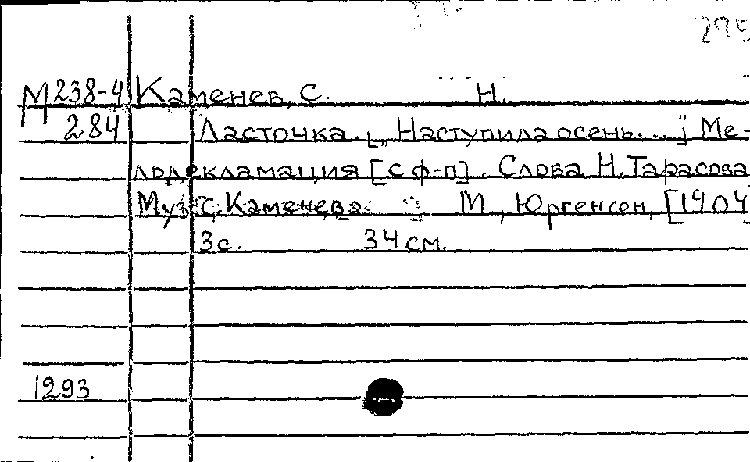 295
М 238-4 Каменев, С. Н.
284 Ласточка. [„Наступила осень..."] Ме-
лодекламация [с ф-п]. Слова Н. Тарасова
Муз. С. Каменева. М., Юргенсон, [1904
3с. 34 см.
1293